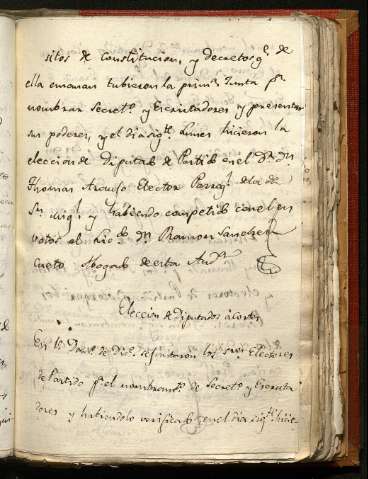 sitos de constitucion, y decretos q.e de
ella emanan tubieron la prim.a Junta p.a
nombrar Secret.o y Escrutadores y presentar
sus poderes, y el dia sig.te Lunes hicieron la
eleccion de Diputado de Partido en el D.r D.n
Thomas Elector Parroq.l de la de
S.n y habiendo competido con el en
votos el Lic.do D.n Ramon Sanchez
Cueto Abogado de esta Aud.a
Eleccion de diputados a Cortes
En 15 de Dic.e se juntaron los Electores
de Partido p.a el nombram.to de Secret.o y Escruta
dores y habiendolo verificado en el dia sig.te hicie